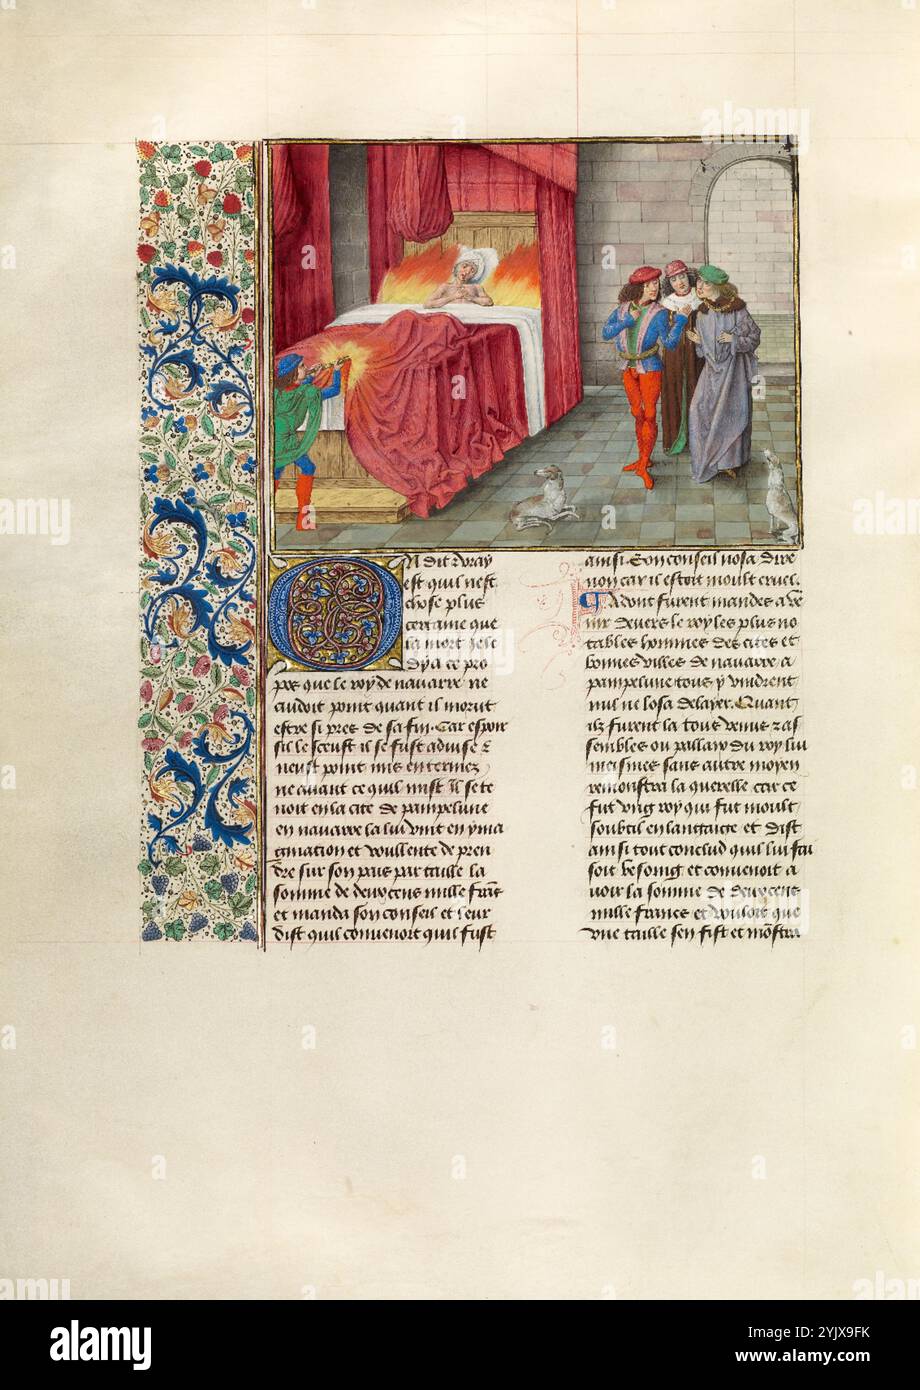 On dit vray
est quil nest
chose plus
certaine que
la mort Je le
dy a ce pro
pos que le roy de navarre ne
cuidoit point quant il morut
estre si pres de sa fin. Car espoir
sil le sceust il se fust advise et
neust point mis en termez
ne avant ce quil mist Il se te
noit en la cite de pampelune
en navarre la lui vint en yma
gination et voullente de pren
dre sur son pais par taille la
somme de deux cens mille frans
et manda son conseil et leur
dist quil convenoit quil fust
ainsi. Son conseil nosa dire
non car il estoit moult cruel.
Adont furent mandes a ve
nir devers le roy les plus no
tables hommes des cites et
bonnes villes de navarre a
pampelune tous y vindrent
nul ne losa delayer. Quant
ilz furent la tous venus z as
sembles ou pallaix du roy lui
meismes sans autre moyen
remonstra la querelle car ce
fut ung roy qui fut moult
soubtil en langaige et dist
ainsi tout conclud quil lui fai
soit besoing et convenoit a
voir la somme de deux cens
mille francs et vouloit que
une taille sen fist et monstra
alamy
Image ID: 2YJX9FK
www.alamy.com